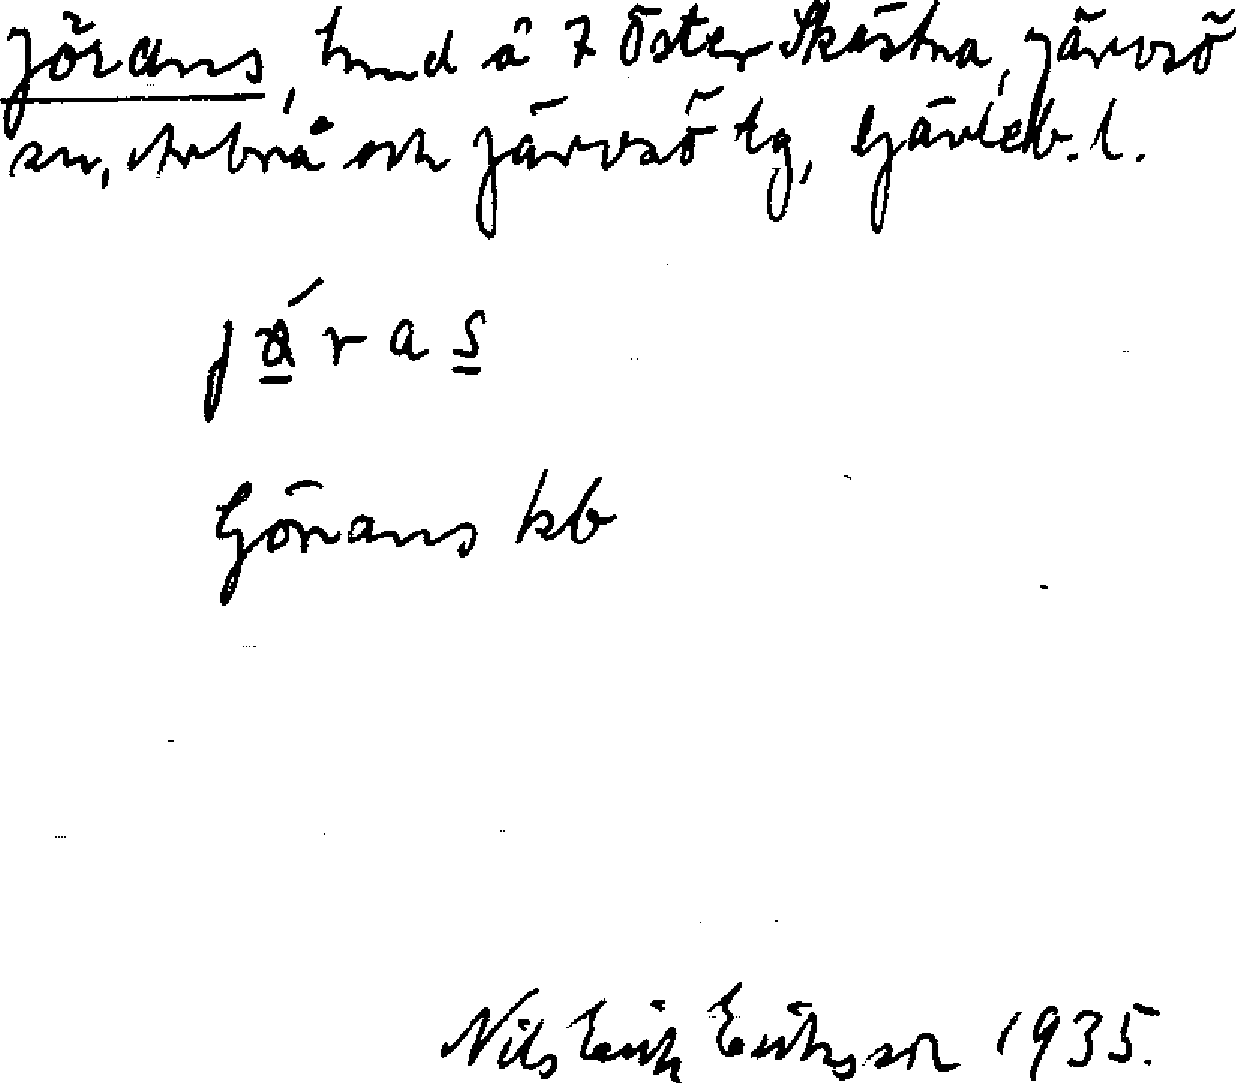 Jörans, hmd å 7 Öster Skästra, Järvsö
sn, Arbrå och Järvsö tg, Gävleb. l.
jöras
Görans kb
Nils Erik Eriksson 1935.